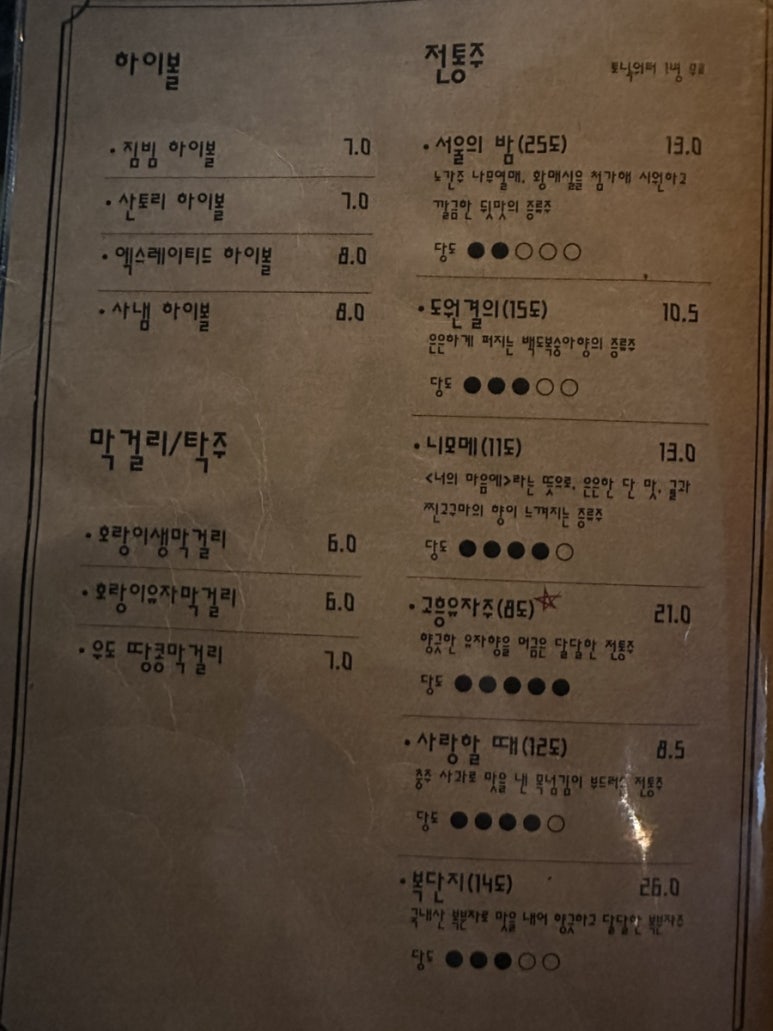 하이볼
• 짐빔 하이볼 7.0
• 산토리 하이볼 7.0
• 엑스레이티드 하이볼 8.0
• 사냄 하이볼 8.0
막걸리/탁주
• 호랑이생막걸리 6.0
• 호랑이유자막걸리 6.0
• 우도 땅콩막걸리 7.0
전통주
토닉워터 1병 무료
• 서울의 밤(25도) 13.0
노간주 나무열매, 황매실을 첨가해 시원하고
깔끔한 뒷맛의 증류주
당도 ●●○○○
• 도원결의(15도) 10.5
은은하게 퍼지는 백도복숭아향의 증류주
당도 ●●●○○
• 니모메(11도) 13.0
<너의 마음에>라는 뜻으로, 은은한 단 맛, 귤과
찐고구마의 향이 느껴지는 증류주
당도 ●●●●○
• 고흥유자주(8도)☆ 21.0
향긋한 유자향을 머금은 달달한 전통주
당도 ●●●●●
• 사랑할 때(12도) 8.5
충주 사과로 맛을 낸 목넘김이 부드러운 전통주
당도 ●●●●○
• 복단지(14도) 26.0
국내산 복분자로 맛을 내어 향긋하고 달달한 복분자주
당도 ●●●○○